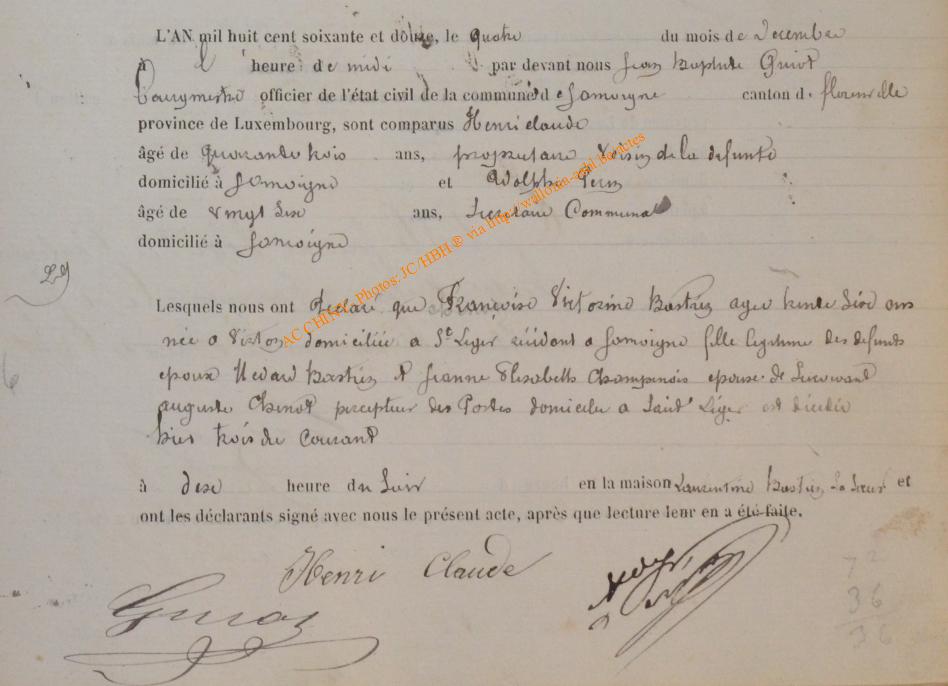 L'AN mil huit cent soixante et douze, le quatre du mois de Decembre
à heure de midi par devant nous Jean Baptiste Guiot
Bourgmestre officier de l'état civil de la commune d e Jamoigne canton d. florenville
province de Luxembourg, sont comparus Henri claude
âgé de quarante trois ans, propriétaire voisin de la defunte
domicilié à Jamoigne et Adolphe
âgé de vingt ans, Secretaire Communal
domicilié à Jamoigne
29
Lesquels nous ont declaré que Françoise Victorine Bastien agée trente ans
née a Virton domiciliée a St Leger résidant a Jamoigne fille legitime des defunts
epoux Medard Bastien et Jeanne Elisabeth Champenois epouse de
auguste percepteur des Postes domicilié a Saint Léger est décédée
hier trois du Courant
à heure du Soir en la maison Laurentine Bastien Sa Sœur et
ont les déclarants signé avec nous le présent acte, après que lecture leur en a été faite.
Henri Claude
Guiot
72
36
36
AC CHINY - Photos: JC/HBH ® via http://wallonia-asbl.be/actes